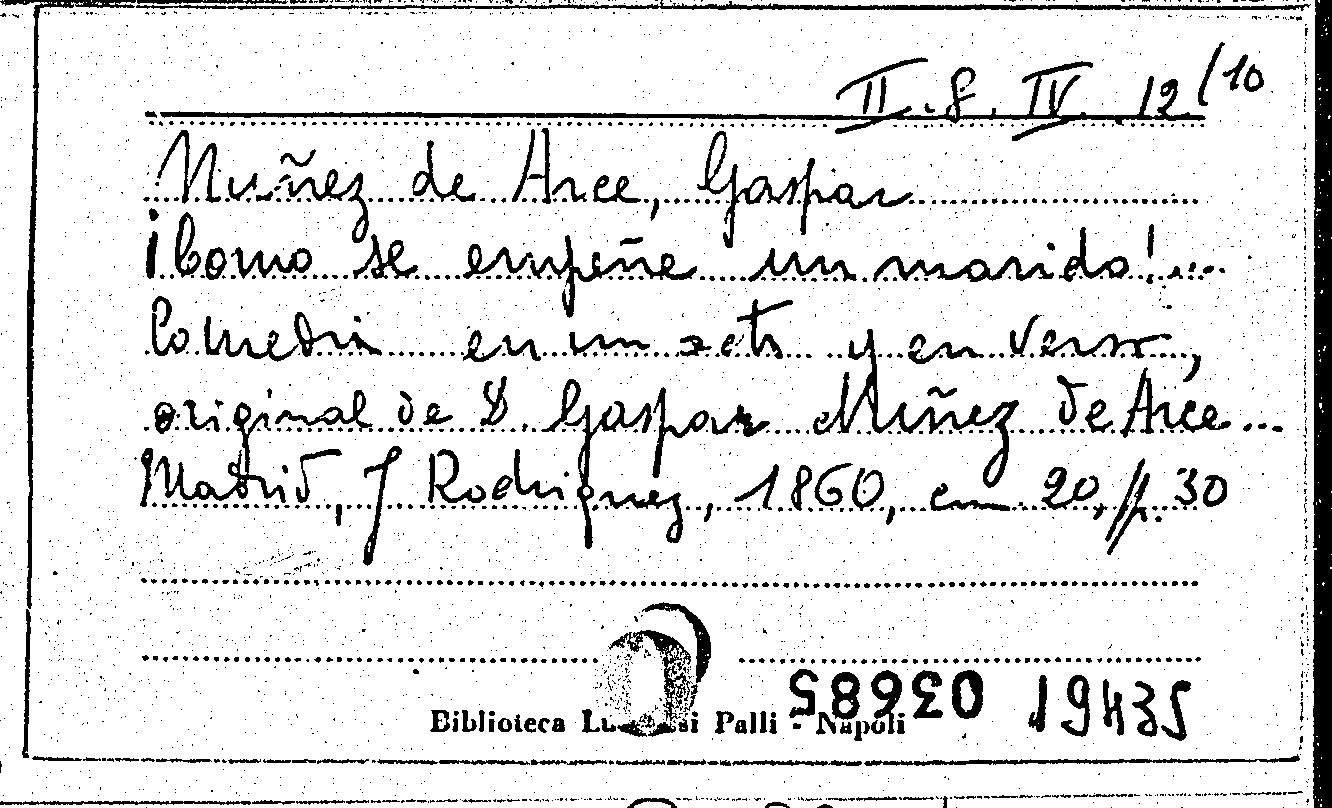 II. 8. IV. 12/10
Nuñez de Arce, Gaspar
¡Como se empeñe un marido!...
Comedia en un acto y en verso,
original de D. Gaspar Nuñez de Arce...
Madrid, J Rodriguez, 1860, cm 20, p. 30
03685 19435
Biblioteca Palli - Napoli